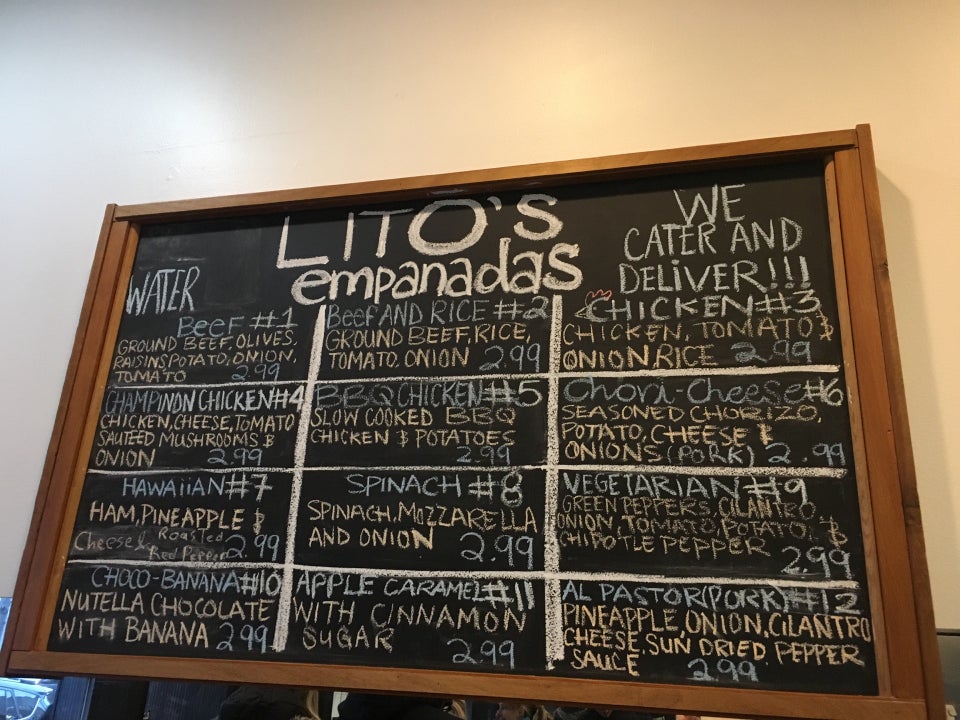 LITO'S
empanadas
WE
CATER AND
DELIVER!!!
WATER
BEEF #1
GROUND BEEF, OLIVES,
RAISINS, POTATO, ONION,
TOMATO 2.99
BEEF AND RICE #2
GROUND BEEF, RICE,
TOMATO, ONION 2.99
CHICKEN #3
CHICKEN, TOMATO &
ONION, RICE 2.99
CHAMPINON CHICKEN #4
CHICKEN, CHEESE, TOMATO
SAUTEED MUSHROOMS &
ONION 2.99
BBQ CHICKEN #5
SLOW COOKED BBQ
CHICKEN & POTATOES
2.99
Chori-Cheese #6
SEASONED CHORIZO,
POTATO, CHEESE &
ONIONS (PORK) 2.99
HAWAIIAN #7
HAM, PINEAPPLE &
Cheese & Roasted
Red Pepper 2.99
SPINACH #8
SPINACH, MOZZARELLA
AND ONION 2.99
VEGETARIAN #9
GREEN PEPPERS, CILANTRO,
ONION, TOMATO, POTATO, &
CHIPOTLE PEPPER
2.99
CHOCO-BANANA #10
NUTELLA CHOCOLATE
WITH BANANA 2.99
APPLE CARAMEL #11
WITH CINNAMON
SUGAR
2.99
AL PASTOR (PORK) #12
PINEAPPLE, ONION, CILANTRO
CHEESE, SUN DRIED PEPPER
SAUCE 2.99